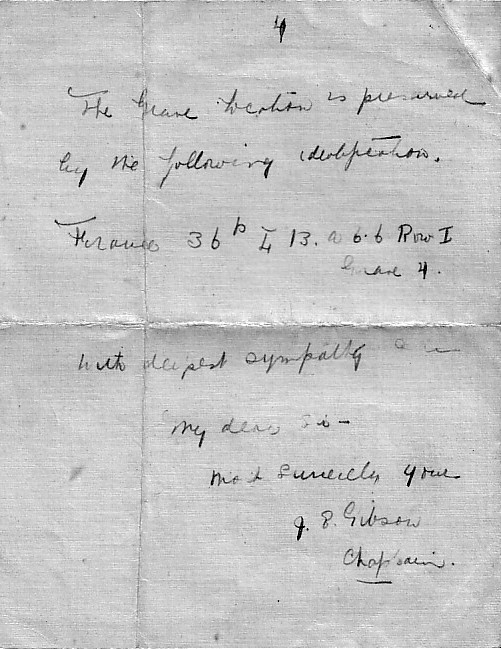 4
The Grave location is preserved
by the following identification.
France 36 b L 13. a 6.6 Row I
Grave 4.
With deepest sympathy
My dear Sir
Most Sincerely yours
J. E. Gibson
Chaplain.